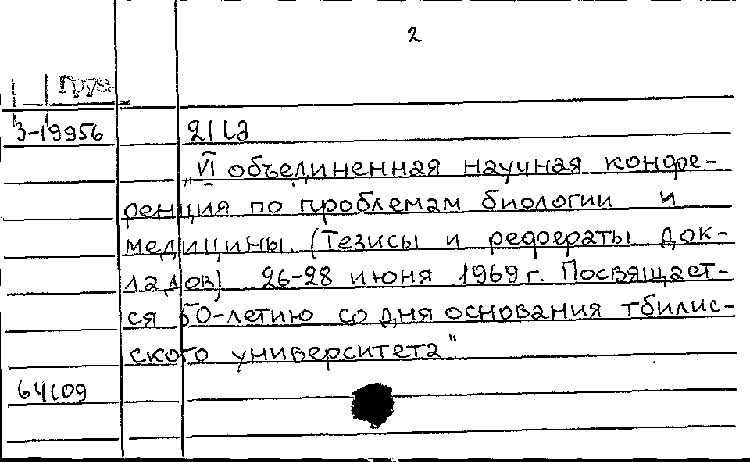 2
груз
3-19956
21L3
„VI объединенная научная конфе-
ренция по проблемам биологии и
медицины. (Тезисы и рефераты док-
ладов) 26-28 июня 1969 г. Посвящает-
ся 50-летию со дня основания тбилис-
ского университета"